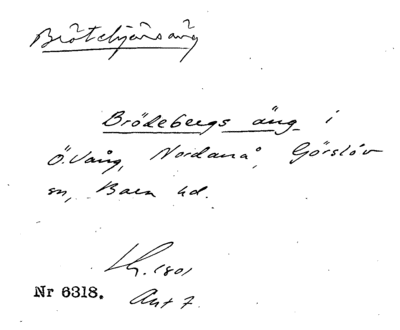 Brötebjärsäng
Brödebergs äng i
Ö. Vång, Nordanå, Görslöv
sn, Bara hd.
Lh. 1801
Nr 6318. Akt 7.